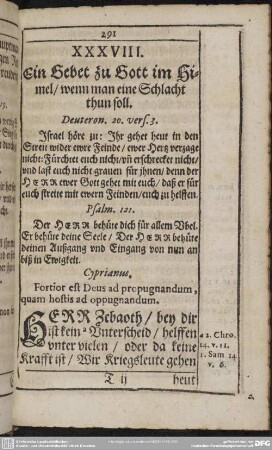 291
XXXVIII.
Ein Gebet zu Gott im Hi-
mel/ wenn man eine Schlacht
thun soll.
Deuteron. 20. vers. 3.
Israel höre zu: Ihr gehet heut in den
Streit wider ewre Feinde/ ewer Hertz verzage
nicht: Fürchtet euch nicht/ vñ erschrecket nicht/
vnd last euch nicht grauen für jhnen/ denn der
HERR ewer Gott gehet mit euch/ daß er für
euch streite mit ewern Feinden/ euch zu helffen.
Psalm. 121.
Der HERR behüte dich für allem Vbel.
Er behüte deine Seele/ Der HERR behüte
deinen Außgang vnd Eingang von nun an
biß in Ewigkeit.
Cyprianus,
Fortior est Deus ad propugnandum,
quam hostis ad oppugnandum.
HERR Zebaoth/ bey dir
ist kein a Unterscheid/ helffen
vnter vielen/ oder da keine
Krafft ist/ Wir Kriegsleute gehen
a 2. Chro.
14. v. 11.
1. Sam 14
v. 6.
T ij
heut